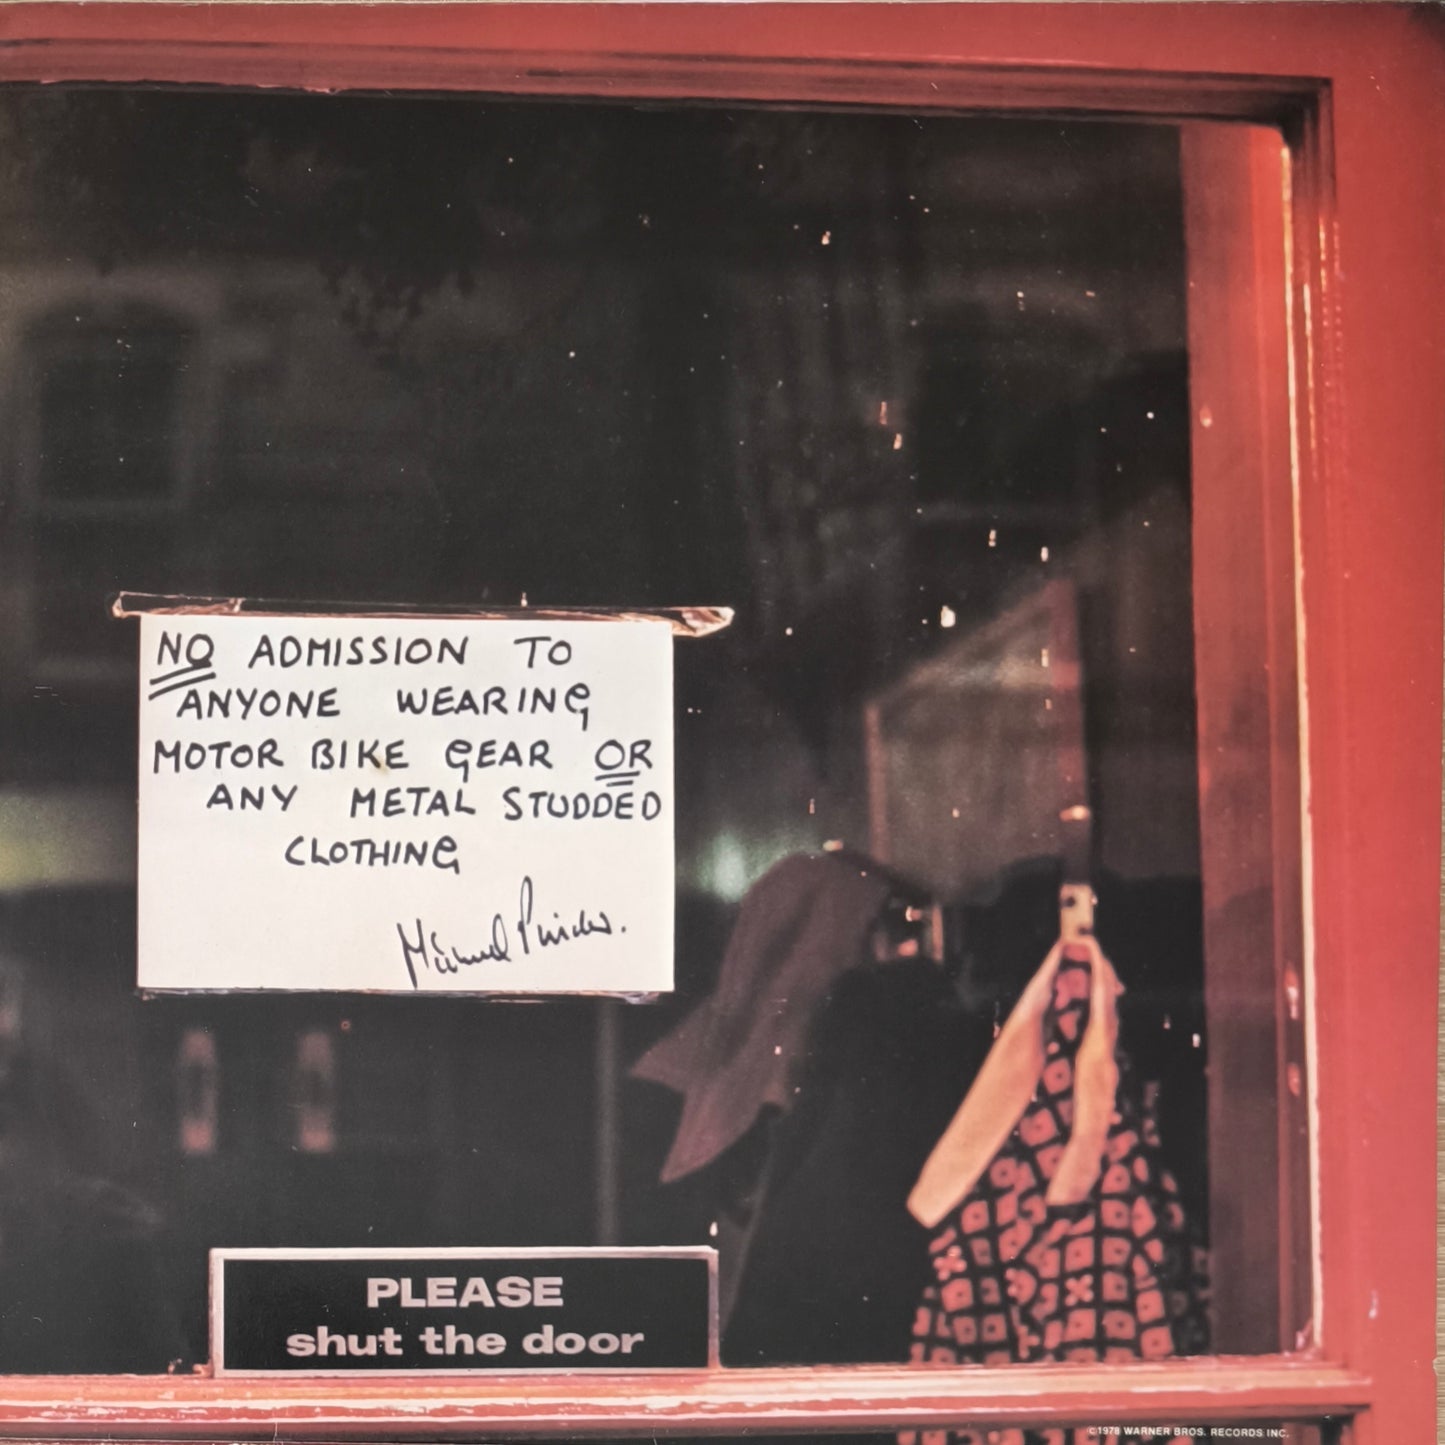 NO ADMISSION TO
ANYONE WEARING
MOTOR BIKE GEAR OR
ANY METAL STUDDED
CLOTHING
PLEASE
shut the door
©1978 WARNER BROS. RECORDS INC.